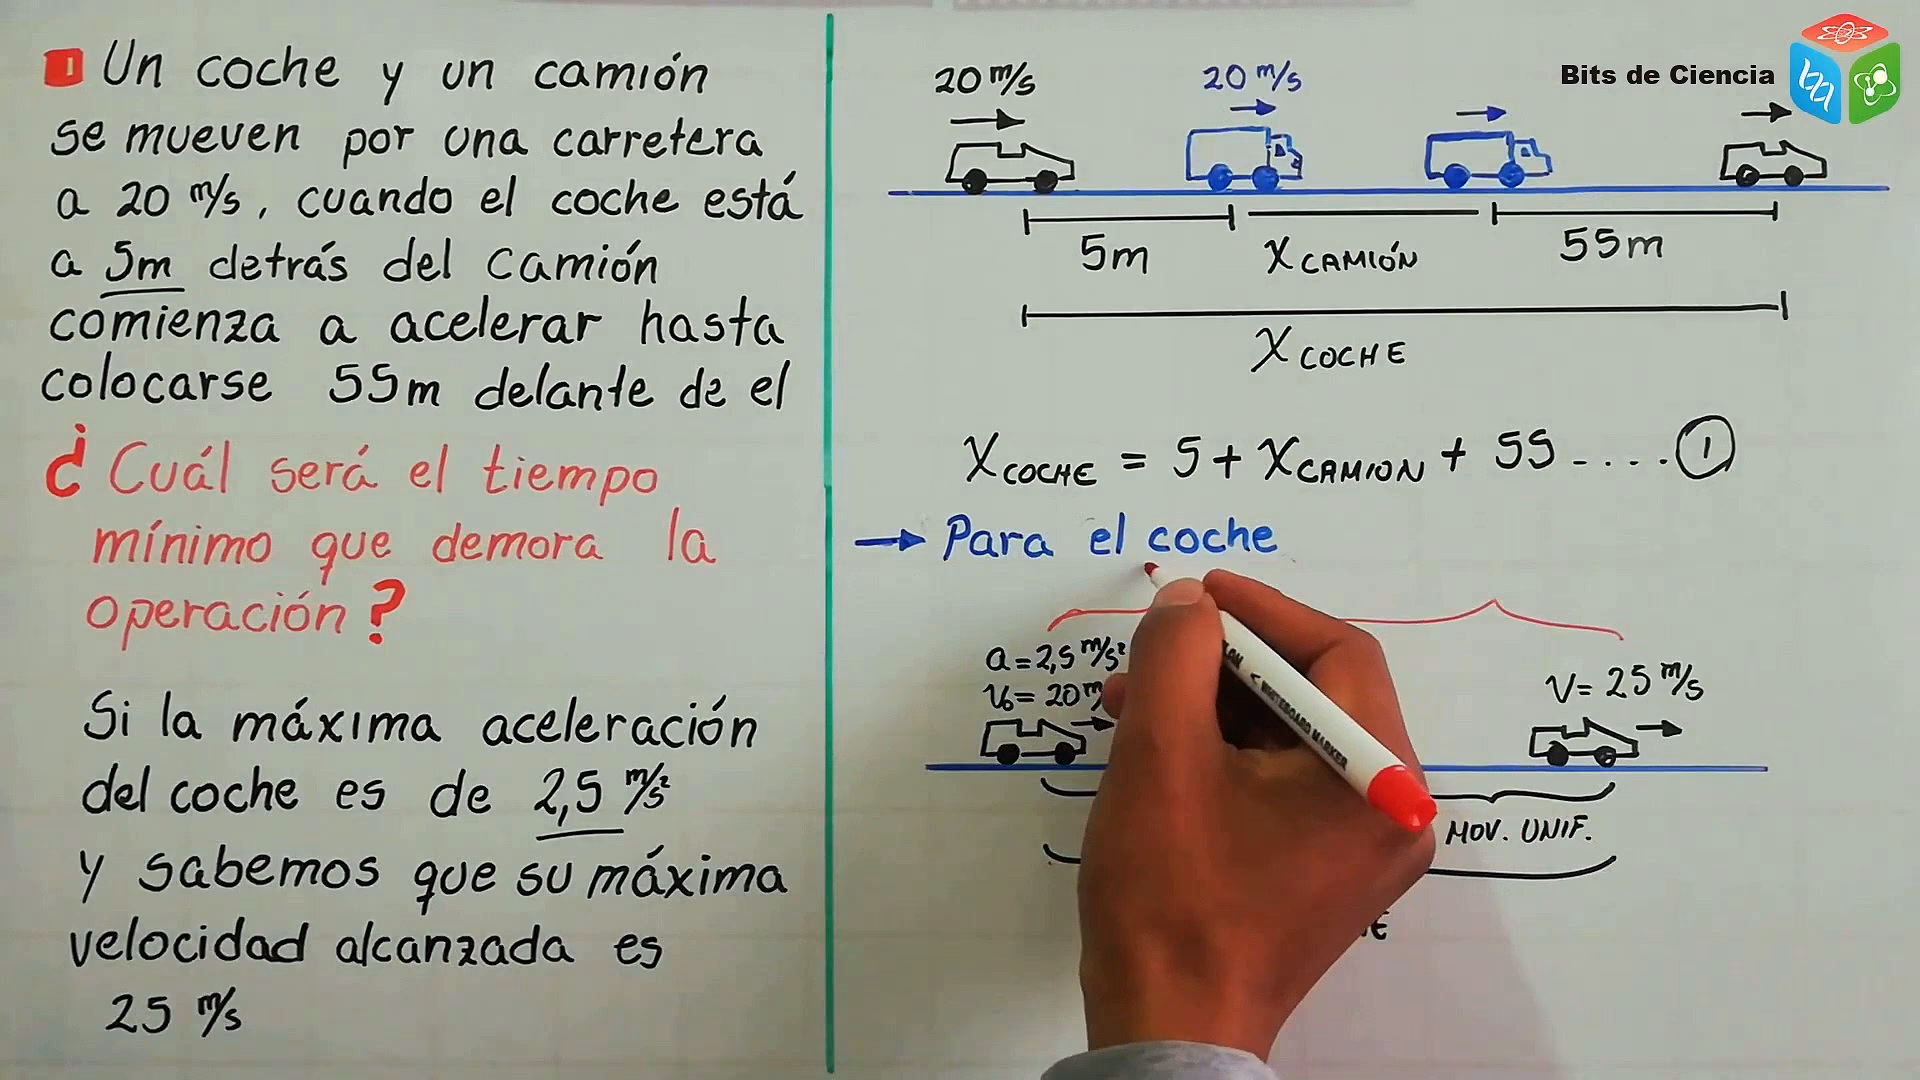 1 Un coche y un camión
se mueven por una carretera
a 20 m/s, cuando el coche está
a 5m detrás del camión
comienza a acelerar hasta
colocarse 55m delante de el
¿Cuál será el tiempo
mínimo que demora la
operación?
Si la máxima aceleración
del coche es de 2,5 m/s²
y sabemos que su máxima
velocidad alcanzada es
25 m/s
Bits de Ciencia
20 m/s
20 m/s
5m
X CAMIÓN
55m
X COCHE
X COCHE = 5 + X CAMION + 55 .... 1
→ Para el coche
a = 2,5 m/s²
V₀ = 20
V = 25 m/s
MOV. UNIF.
WHITEBOARD MARKER